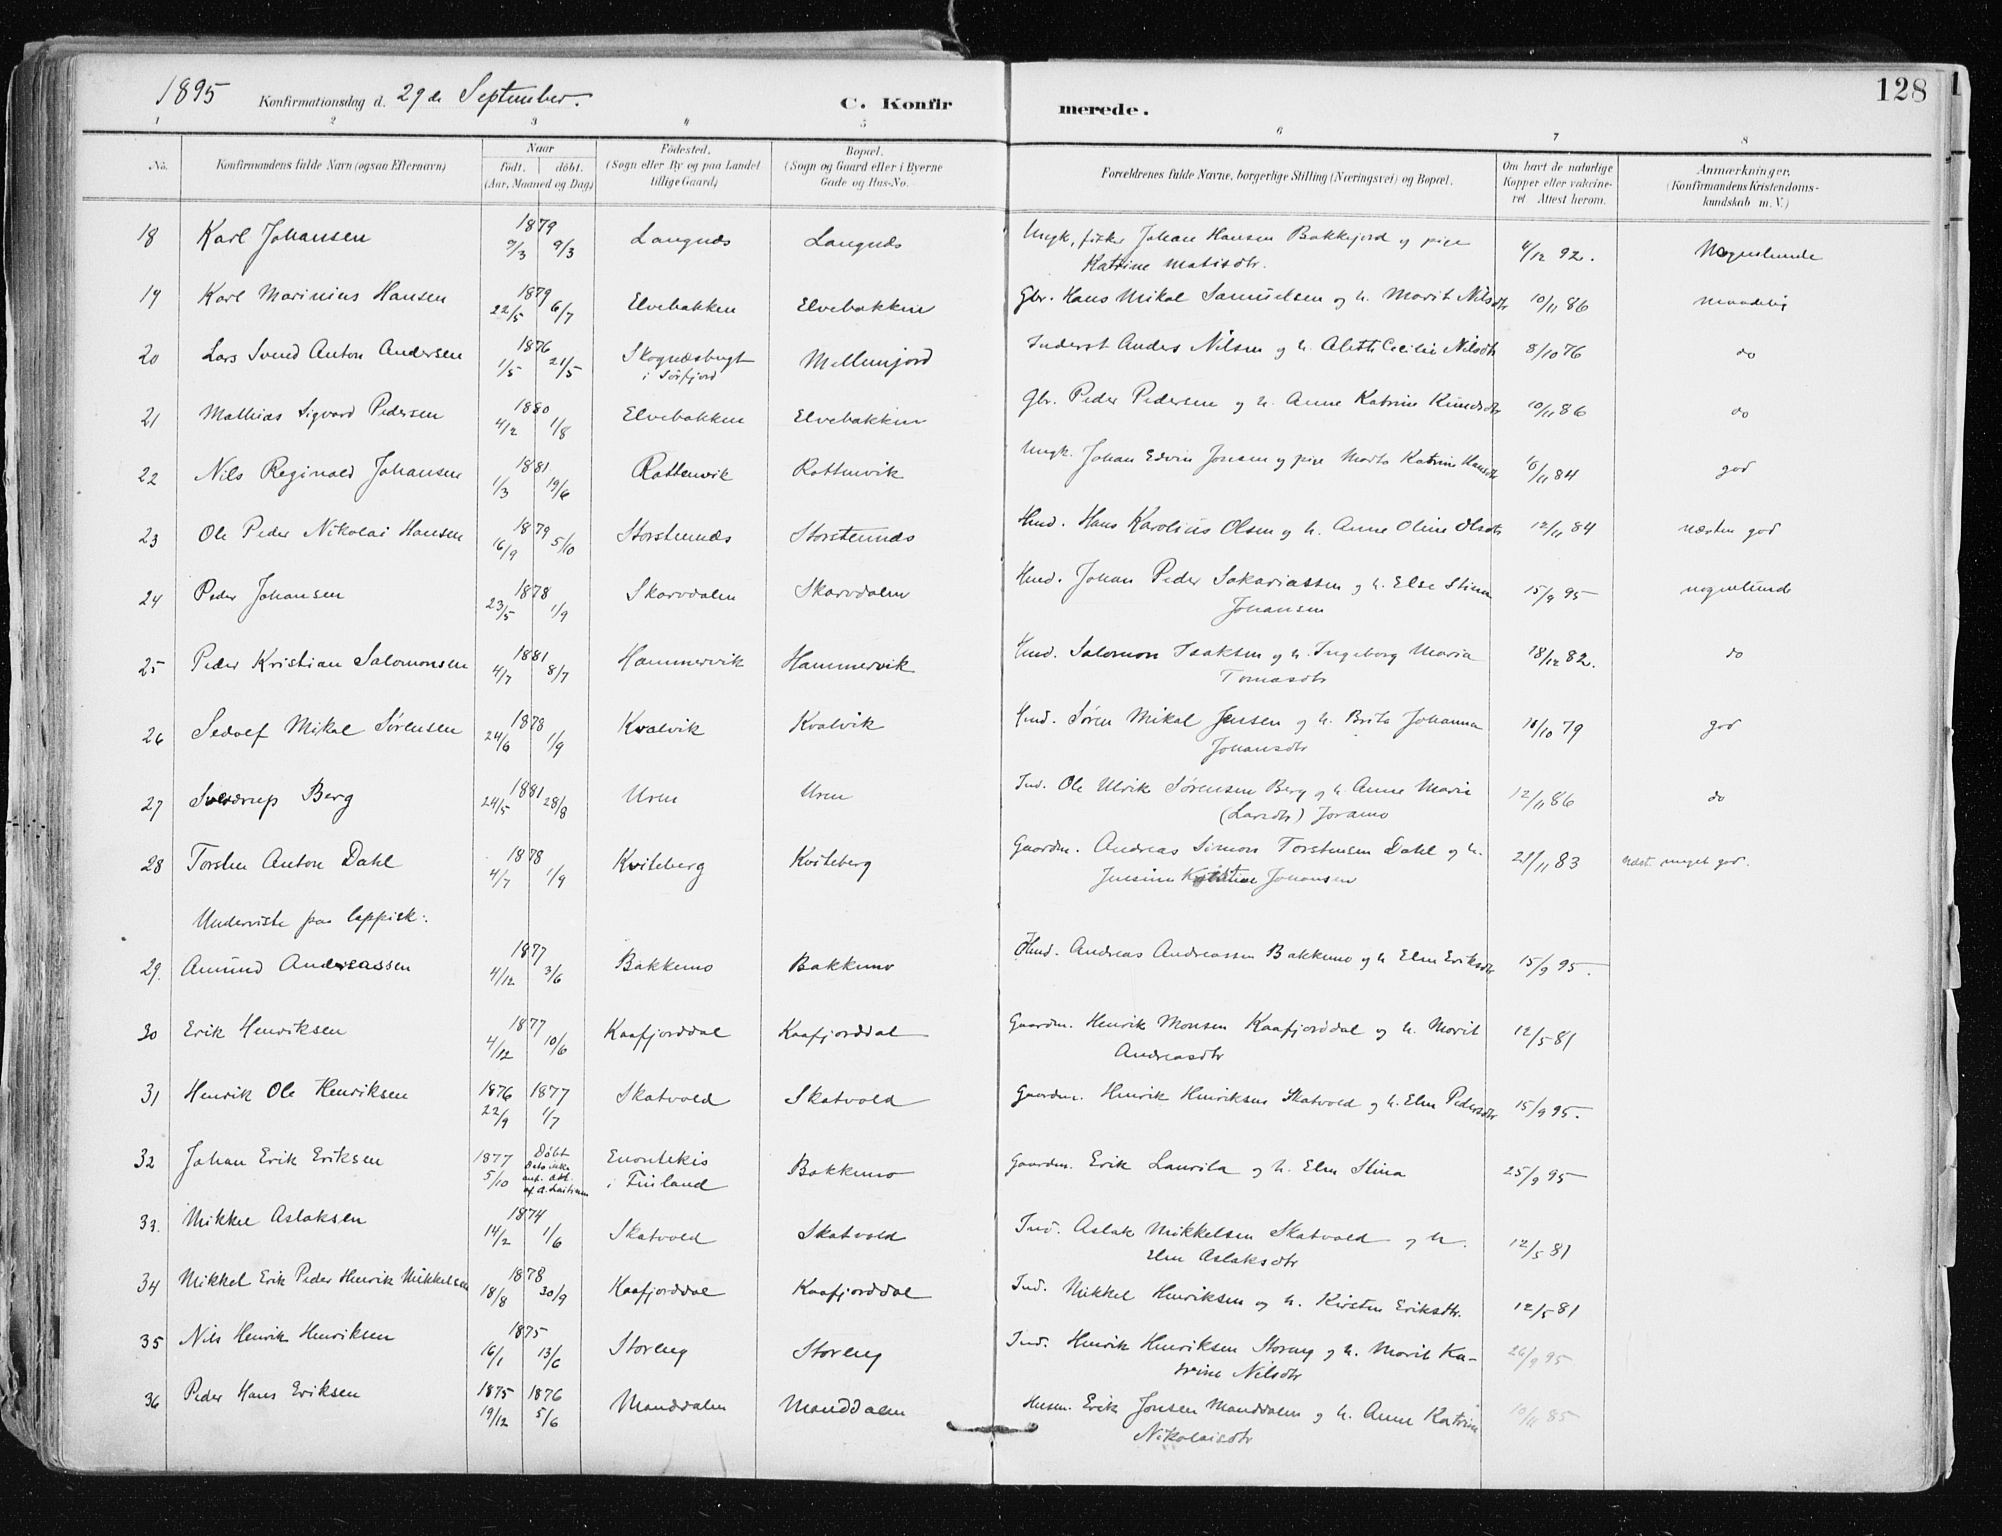 1895 Konfirmationsdag d. 29de September. C. Konfirmerede. 128
1 2 3 4 5 6 7 8
No. Konfirmandens fulde Navn (ogsaa Efternavn) Naar födt. döbt. (Aar, Maaned og Dag) Födested. (Sogn eller By og paa Landet tillige Gaard) Bopæl. (Sogn og Gaard eller i Byerne Gade og Hus-No. Forældrenes fulde Navne, borgerlige Stilling (Næringsvei) og Bopæl. Om havt de naturlige Kopper eller vakcineret Attest herom. Anmærkninger. (Konfirmandens Kristendomskundskab m. V.)
18 Karl Johansen 1879 9/3 Langnes Langnes Ungk, fisker Johan Hansen Bakkejord og pige Katrine Matisdtr. 4/12 92. Nogenlunde
19 Karl Marinius Hansen 1879 22/5 6/7 Elvebakken Elvebakken Gbr. Hans Mikal Samuelsen og h. Marit Nilsdtr 10/11 86 maadelig
20 Lars Svend Anton Andersen 1876 1/5 21/5 Skognesbugt i Sörfjord Mellemjord Inderst Anders Nilsen og h. Aleth Cecilie Nilsdtr 8/10 76 do
21 Mathias Sigvard Pedersen 1880 4/2 1/8 Elvebakken Elvebakken Gbr. Peder Pedersen og h. Anne Katrine Knudsdtr 10/11 86 do
22 Nils Reginald Johansen 1881 1/3 19/6 Rottenvik Rottenvik Ungk. Johan Edvin Jonsen og pige Marta Katrine Hansdtr 10/11 84 god
23 Ole Peder Nikolai Hansen 1879 16/9 5/10 Storstennes Storstennes Husd. Hans Karolius Olsen og h. Anne Oline Olsdtr 12/11 84 næsten god
24 Peder Johansen 1878 23/5 1/9 Skarvdalen Skarvdalen Husd. Johan Peder Sakariassen og h. Else Stina Johansen 15/9 95 nogenlunde
25 Peder Kristian Salomonsen 1881 4/7 8/7 Hammervik Hammervik Husd. Salomon Isaksen og h. Ingeborg Maria Tomasdtr 18/12 82. do
26 Sedolf Mikal Sørensen 1878 24/6 1/9 Kvalvik Kvalvik Husd. Søren Mikal Jensen og h. Brita Johanna Johansdtr 18/10 79 god
27 Sverdrup Berg 1881 24/5 28/8 Uren Uren Ind. Ole Ulrik Sørensen Berg og h. Anne Marie (Larsdtr) Joramo 12/11 86 do
28 Torsten Anton Dahl 1878 4/7 1/9 Kviteberg Kviteberg Gaardm. Andreas Simon Torstensen Dahl og h. Jensine Johansen 28/11 83 næst. meget god.
Underviste paa lappisk:
29. Amund Andreassen 1877 4/12 3/6 Bakkemo Bakkemo Husd. Andreas Andreassen Bakkemo og h Elen Eriksdtr 15/9 95.
30 Erik Henriksen 1877 4/12 10/6 Kaafjorddal Kaafjorddal Gaardm. Henrik Monsen Kaafjorddal og h. Marit Andreasdtr 12/5 81
31 Henrik Ole Henriksen 1876 22/9 1877 1/7 Skatvold Skatvold Gaardm. Henrik Henriksen Skatvold og h. Elen Pedersdtr 15/9 95.
32 Johan Erik Eriksen 1877 5/10 Døbt Enontekis i Finland Bakkemo Gaardm. Erik Laurila og h. Elen Stina 25/9 95
33. Mikkel Aslaksen 1874 14/2 1/6 Skatvold Skatvold Ind. Aslak Mikkelsen Skatvold og h. Elen Aslaksdtr 12/5 81
34 Mikkel Erik Peder Henrik Mikkelsen 1878 18/8 30/9 Kaafjorddal Kaafjorddal Ind. Mikkel Henriksen og h. Kirsten Eriksdtr. 12/5 81
35 Nils Henrik Henriksen 1875 16/1 13/6 Storeng Storeng Ind. Henrik Henriksen Storeng og h. Marit Katrine Nilsdtr 26/9 95
36 Peder Hans Eriksen 1875 19/12 1876 5/6 Manddalen Manddalen Husm. Erik Jonsen Manddalen og h. Anne Katrine Nikolaisdtr 10/11 85